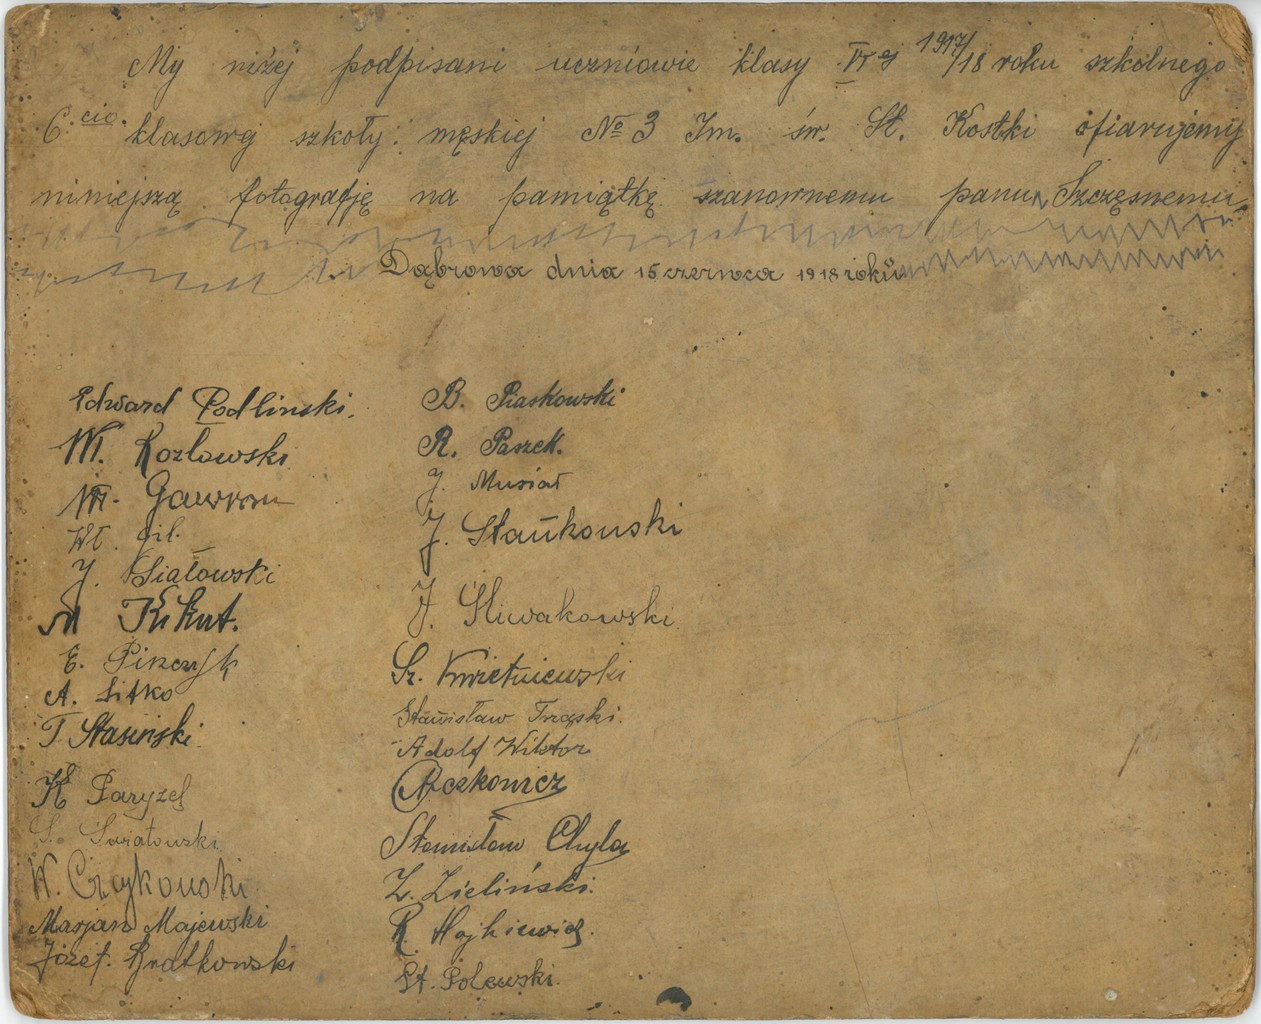 My niżej podpisani uczniowie klasy VIej 1917/18 roku szkolnego
6.cio klasowej szkoły męskiej № 3 Im. św. St. Kostki ofiarujemy
niniejszą fotografję na pamiątkę szanownemu panu Szczęsnemu.
Dąbrowa dnia 15 czerwca 1918 roku
Edward Podlinski.
Wł. Kozlowski
Gawron
Wł. Gil.
J. Siałowski
M Kikut.
E. Pinczyk
A. Sitko
T Stasiński.
K Paryzel
S. Suratowski
W. Czykowski
Marjan Majewski
Józef. Bratkowski
B. Piaskowski
R. Paszek.
J. Musiał
J. Stańkouski
J. Sliwakowski
Sz. Kwietniewski
Stanisław Trząski.
Adolf Wiktor
Stanisław Chyla
Z. Zieliński.
R. Hajkiewicz.
St. Polewski.